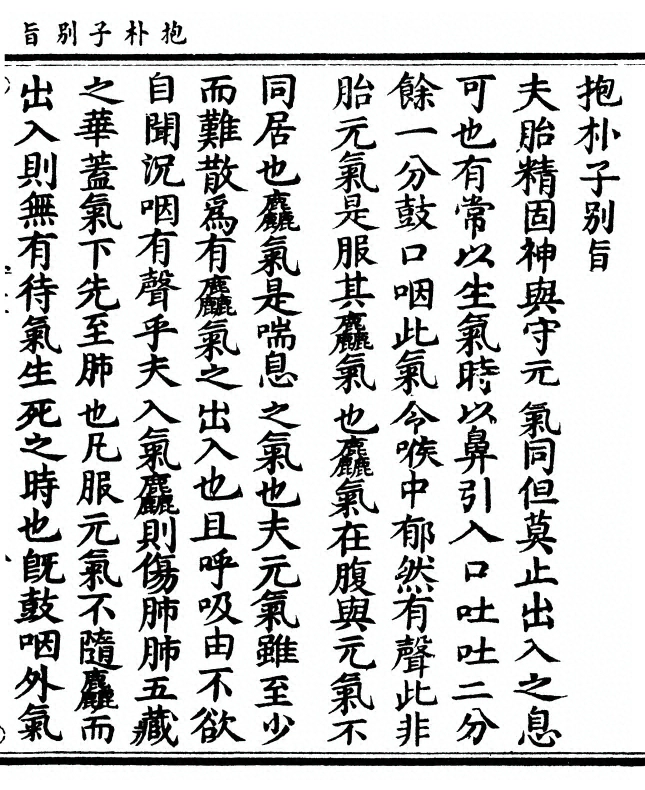 抱朴子別旨
抱朴子别旨
夫胎精固神與守元氣同但莫止出入之息
可也有常以生氣時以鼻引入口吐吐二分
餘一分鼓口咽此氣令喉中郁然有聲此非
胎元氣是服其麤氣也麤氣在腹與元氣不
同居也麤氣是喘息之氣也夫元氣雖至少
而難散爲有麤氣之出入也且呼吸由不欲
自聞況咽有聲乎夫入氣麤則傷肺肺五藏
之華蓋氣下先至肺也凡服元氣不隨麤而
出入則無有待氣生死之時也既鼓咽外氣